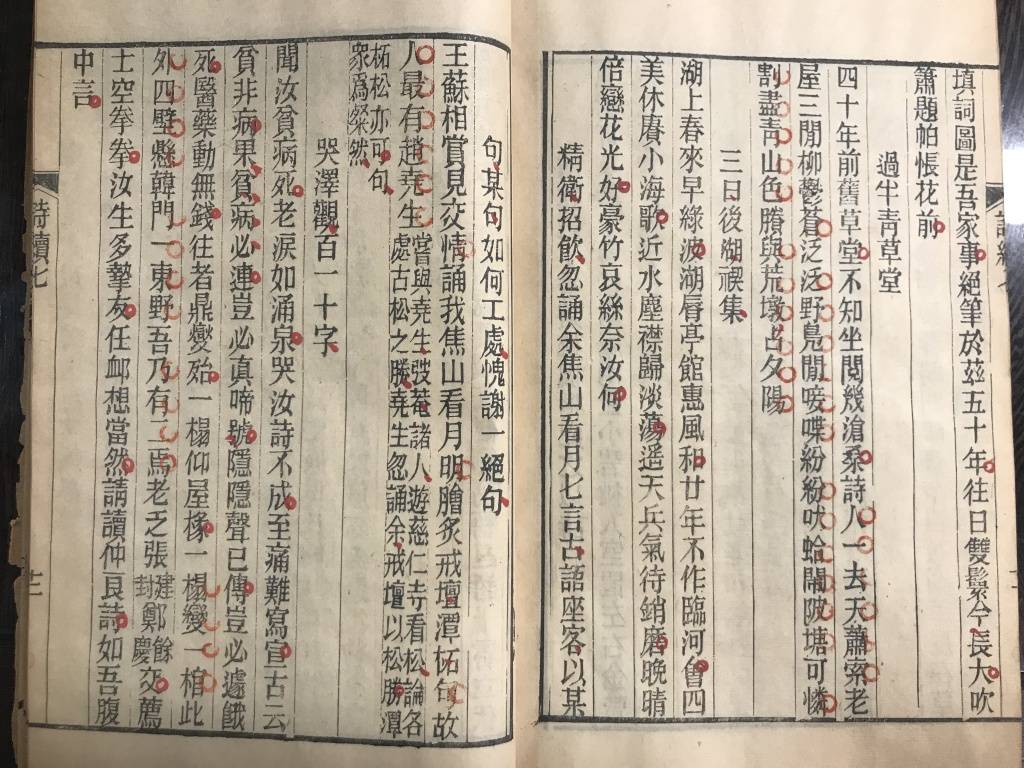 填詞圖是吾家事絕筆於茲五十年往日雙鬟今長大吹
簫題帕悵花前
過半青草堂
四十年前舊草堂不知坐閱幾滄桑詩人一去天蕭索老
屋三閒柳鬱蒼泛泛野鳧閒唼喋紛紛吠蛤鬧陂塘可憐
割盡青山色賸與荒墩占夕陽
三日後湖禊集
湖上春來早綠波湖唇亭館惠風和廿年不作臨河會四
美休賡小海歌近水塵襟歸淡蕩遙天兵氣待銷磨晚晴
倍戀花光好豪竹哀絲奈汝何
精衛招飲忽誦余焦山看月七言古語座客以某
句某句如何工處愧謝一絕句
王蘇相賞見交情誦我焦山看月明膾炙戒壇潭柘句故
人最有趙堯生嘗與堯生弢菴諸人遊慈仁寺看松論各處古松之勝堯生忽誦余戒壇以松勝潭
柘松亦可句眾爲粲然
哭澤觀百一十字
聞汝貧病死老淚如涌泉哭汝詩不成至痛難寫宣古云
貧非病果貧病必連豈必真啼號隱隱聲已傳豈必遽餓
死醫藥動無錢往者鼎爕殆一榻仰屋椽一榻變一棺此
外四壁懸韓門一東野吾乃有二焉老乏張建封鄭餘慶交薦
士空拳拳汝生多摯友任卹想當然請讀仲良詩如吾腹
中言
詩續七